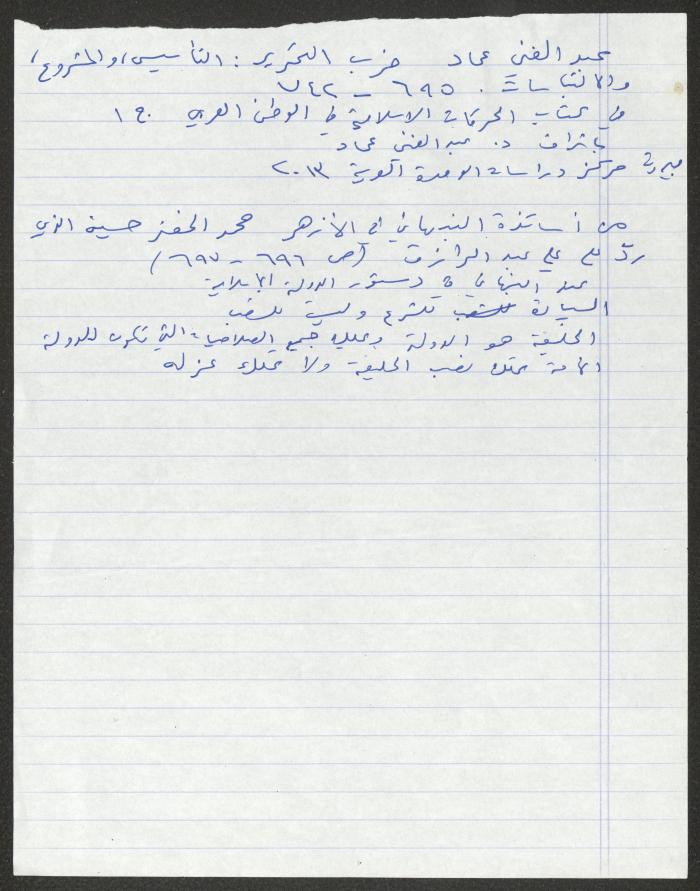 عبد الغني عماد حزب التحرير : التأسيس، والمشروع،
والالتباسات . ٦٩٥ – ٧٤٢
في كتاب الحركات الاسلامية في الوطن العربي ج ١
باشراف د. عبد الغني عماد
بيروت مركز دراسات الوحدة العربية ٢٠١٣
من أساتذة النبهاني في الأزهر محمد الخضر حسين الذي
ردّ على علي عبد الرازق (ص ٦٩٦ – ٦٩٧)
عند النبهاني في دستور الدولة الاسلامية
السيادة للشعب للشرع وليست للشعب
الخليفة هو الدولة ويملك جميع الصلاحيات التي تكون للدولة
الامة تملك نصب الخليفة ولا تملك عزله